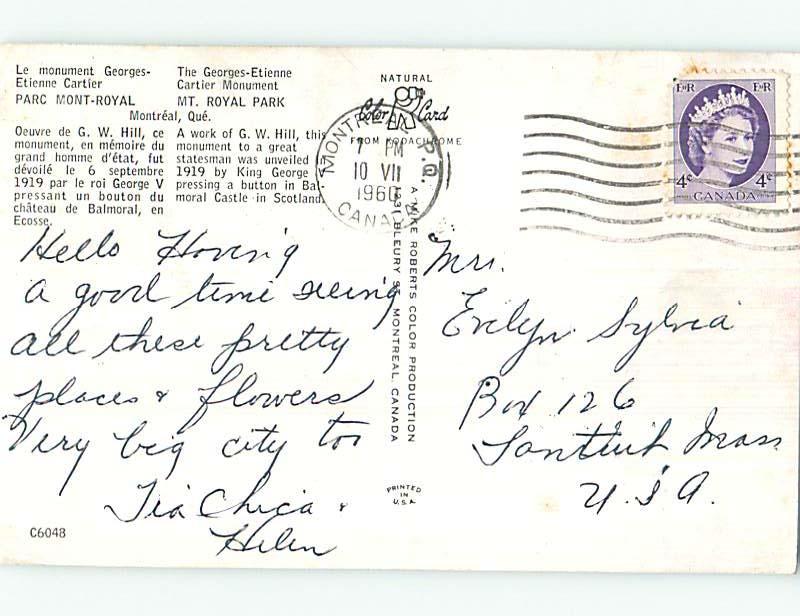 Le monument Georges-
Etienne Cartier
PARC MONT-ROYAL
The Georges-Etienne
Cartier Monument
MT. ROYAL PARK
Montréal, Qué.
Oeuvre de G. W. Hill, ce
monument, en mémoire du
grand homme d'état, fut
dévoilé le 6 septembre
1919 par le roi George V
pressant un bouton du
château de Balmoral, en
Ecosse.
A work of G. W. Hill, this
monument to a great
statesman was unveiled
1919 by King George
pressing a button in Bal-
moral Castle in Scotland.
NATURAL
Color Card
FROM KODACHROME
MONTREAL P.Q.
7 PM
10 VII
1960
CANADA
E R E R
4c 4c
CANADA
A MIKE ROBERTS COLOR PRODUCTION
1231 BLEURY ST. MONTREAL, CANADA
PRINTED
IN
U.S.A.
Hello Having
a good time seeing
all these pretty
places & flowers
Very big city too
Tia Chica &
Helen
Mrs.
Evelyn Sylvia
Box 126
Santuit Mass
U.S.A.
C6048